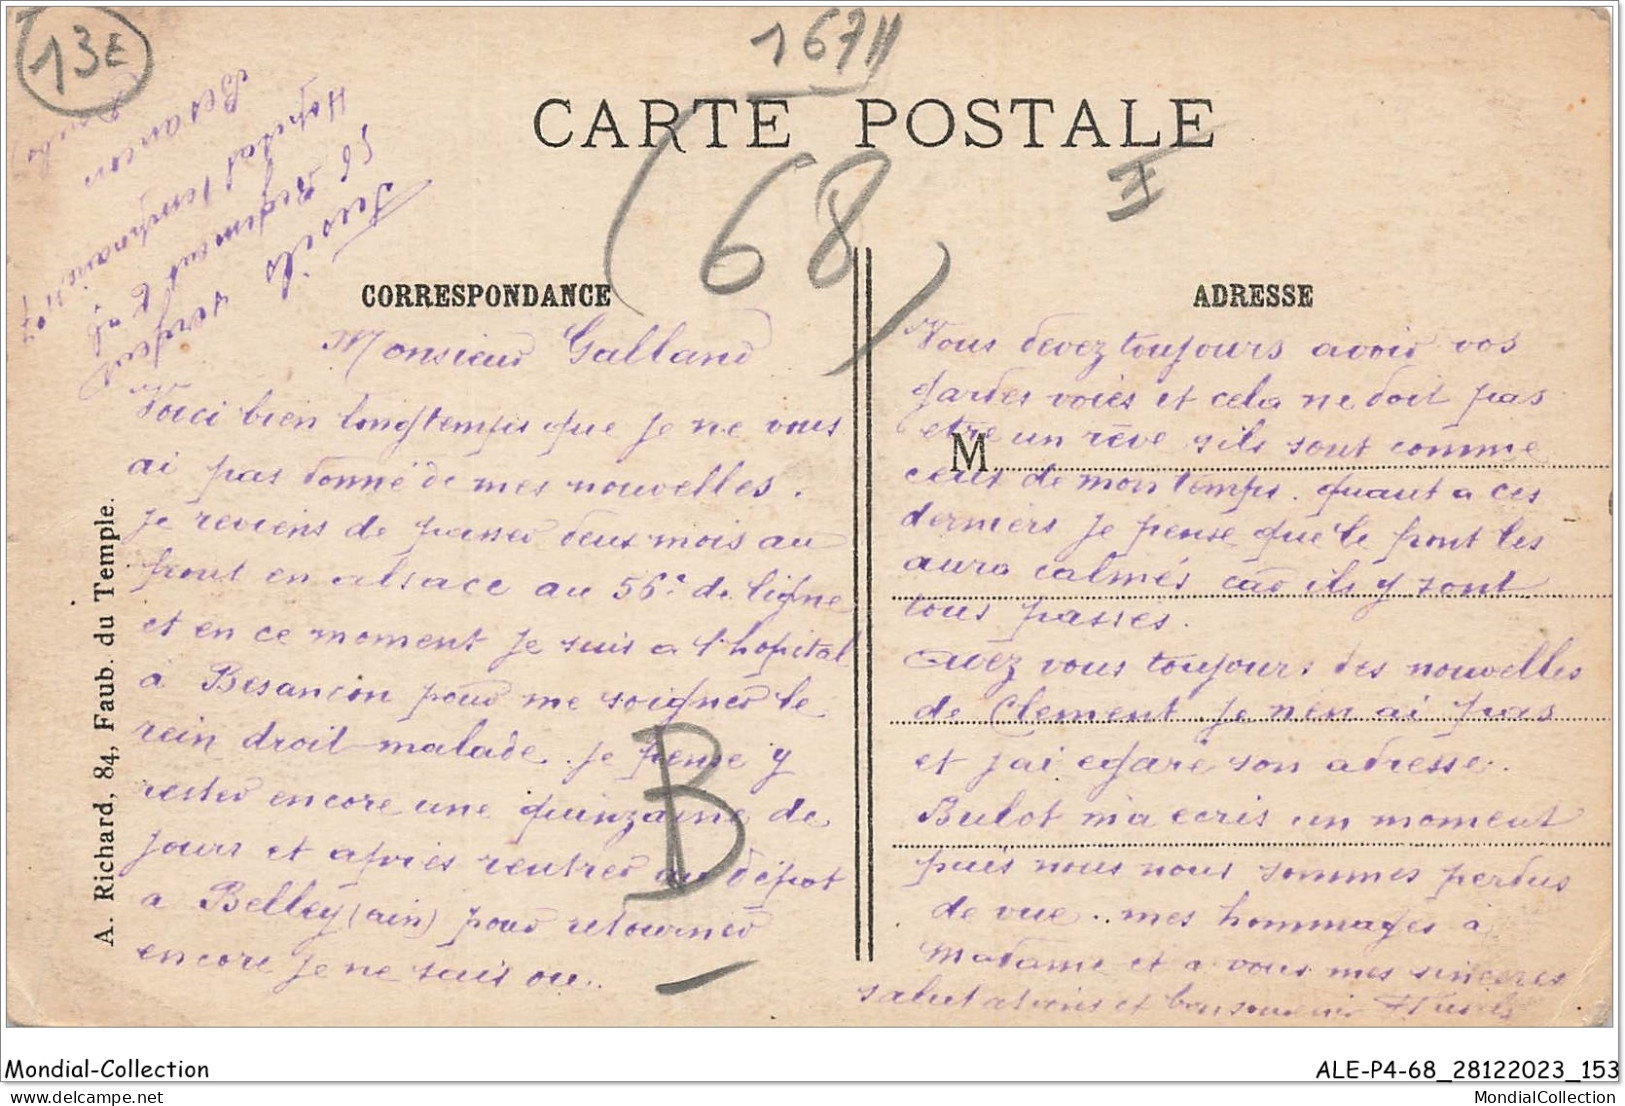 13E
1671
CARTE POSTALE
(68)
I
CORRESPONDANCE
ADRESSE
sergent
56 Regiment
Hopital temporaire n° 7
Besancon
(Doubs)
Monsieur Galland
Voici bien longtemps que je ne vous
ai pas donné de mes nouvelles.
je reviens de passer deux mois au
front en alsace au 56e de ligne
et en ce moment je suis a l'hopital
a Besancon pour me soigner le
rein droit malade. je pense y
rester encore une quinzaine de
jours et après rentrer au dépot
a Belley (ain) pour retourner
encore je ne sais ou..
B
Vous devez toujours avoir vos
gardes voies et cela ne doit pas
etre un rève s'ils sont comme
M
ceux de mon temps. quant a ces
derniers je pense que le front les
aura calmés car ils y sont
tous passés.
Avez vous toujours des nouvelles
de Clement je n'en ai pas
et j'ai egaré son adresse.
Bulot m'a ecris un moment
puis nous nous sommes perdus
de vue.. mes hommages à
Madame et a vous mes sinceres
salutations et bon souvenir
A. Richard, 84, Faub. du Temple.
Mondial-Collection
ALE-P4-68_28122023_153
mondial-collection.delcampe.net
MondialCollection